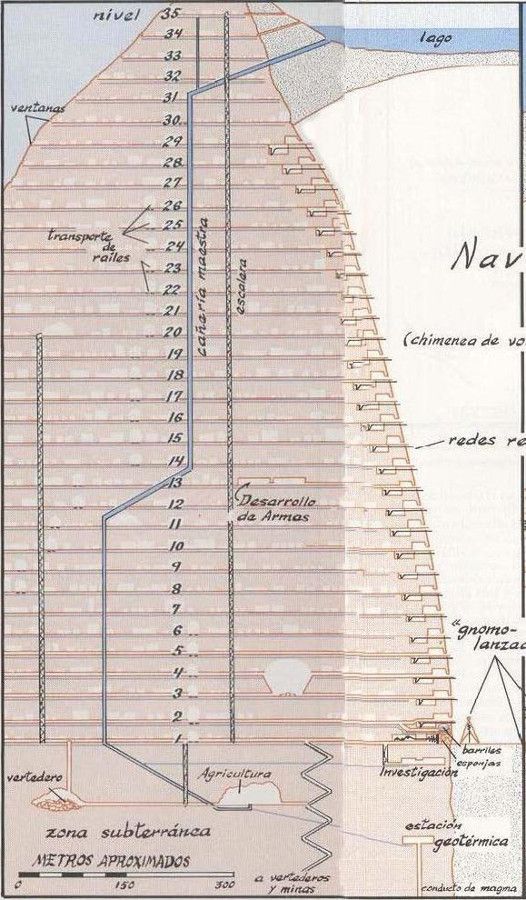 nivel 35
34
lago
33
32
31
ventanas
30
29
28
27
26
transporte
de
railes
25
24
23
22
21
20
19
18
17
16
15
14
13
12
11
10
9
8
7
6
5
4
3
2
1
cañaría maestra
escalera
Nav
(chimenea de vo
redes re
Desarrollo
de Armas
"gnomo-
lanzad
barriles
esponjas
Investigación
vertedero
Agricultura
zona subterránea
estación
geotérmica
METROS APROXIMADOS
0 150 300
a vertederos
y minas
conducto de magma